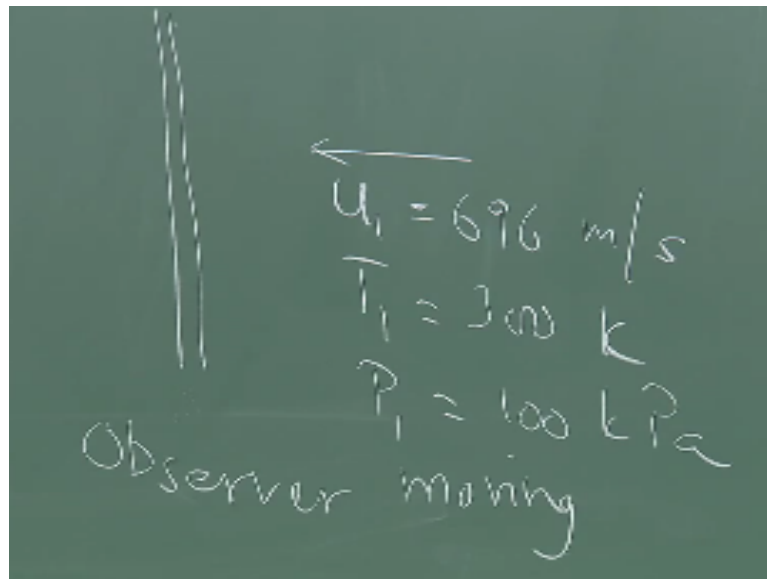 u₁ = 696 m/s
T₁ = 300 k
P₁ = 100 kPa
Observer moving